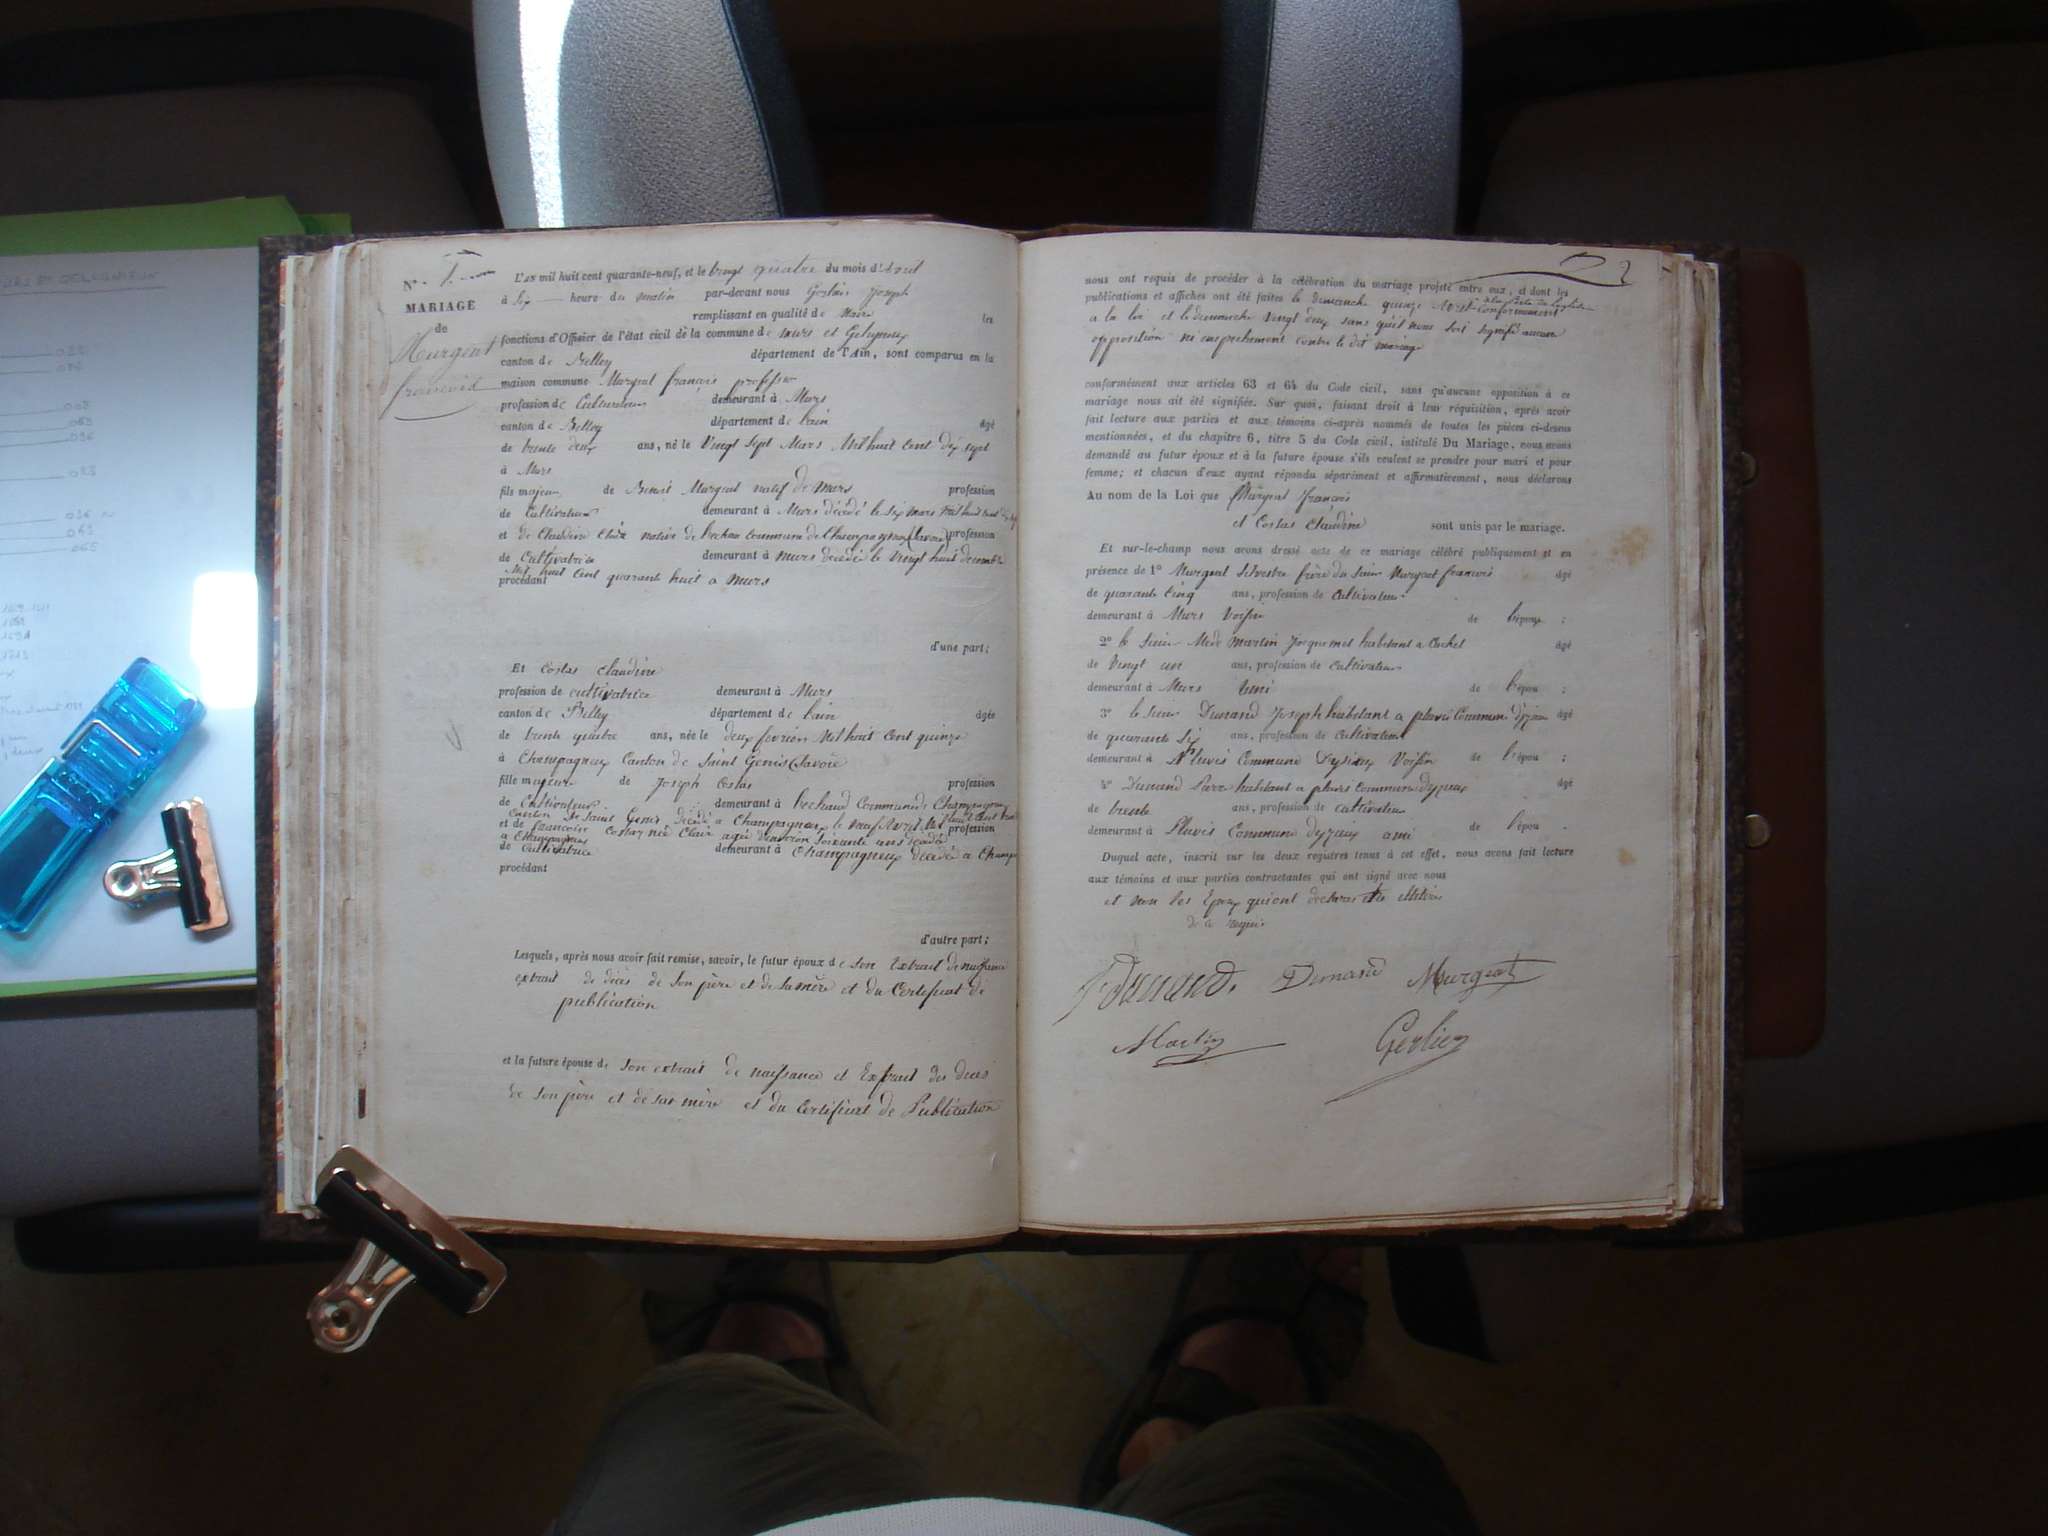 N° 1
MARIAGE
de
Murgeat
francois
L'an mil huit cent quarante-neuf, et le vingt quatre du mois d'Avril
à Six heure du matin par-devant nous Joseph
remplissant en qualité de Maire les
fonctions d'Offisier de l'état civil de la commune de Murs et Gelignieux
canton de Belley département de l'Ain, sont comparus en la
maison commune Murgeat françois
profession de Cultivateur demeurant à Murs
canton de Belley département de lain âgé
de trente deux ans, né le Vingt Sept Mars Mil huit Cent dix sept
à Murs
fils majeur de Benoit Murgeat natif de Murs profession
de Cultivateur demeurant à Murs décédé le six mars mil huit cent
et de Claudine native de bechau Commune de Champagneux (Savoie) profession
de Cultivatrice demeurant à Murs décédé le Vingt huit decembre
Mil huit Cent quarante huit a Murs
procédant
d'une part;
Et Costas Claudine
profession de cultivatrice demeurant à Murs
canton de Belley département de lain âgée
de trente quatre ans, née le deux fevrier Mil huit Cent quinze
à Champagneux Canton de Saint Genis (Savoie
fille majeure de Joseph Costas profession
de Cultivateur demeurant à bechaud Commune de Champagneux
Canton de Saint Genis décédé a Champagneux le neuf Avril Mil huit Cent
et de francoise Costas née Clair agée d'environ Soixante ans décédé profession
a Champagneux
de Cultivatrice demeurant à Champagneux décédé a Champ
procédant
d'autre part;
Lesquels, après nous avoir fait remise, savoir, le futur époux de son Extrait de naissance
extrait de décés de Son père et de Sa mère et du Certificat de
publication
et la future épouse de son extrait de naissance et Extrait des décés
de Son père et de sa mère et du Certificat de Publication
2
nous ont requis de procéder à la célébration du mariage projeté entre eux, et dont les
publications et affiches ont été faites le dimanche quinze Avril conformément
a la loi et le dimanche Vingt deux sans qu'il nous soit signifié aucune
opposition ni empechement contre le dit mariage
conformément aux articles 63 et 64 du Code civil, sans qu'aucune opposition à ce
mariage nous ait été signifiée. Sur quoi, faisant droit à leur réquisition, après avoir
fait lecture aux parties et aux témoins ci-après nommés de toutes les pièces ci-dessus
mentionnées, et du chapitre 6, titre 5 du Code civil, intitulé Du Mariage, nous avons
demandé au futur époux et à la future épouse s'ils veulent se prendre pour mari et pour
femme; et chacun d'eux ayant répondu séparément et affirmativement, nous déclarons
Au nom de la Loi que Murgeat francois
et Costas Claudine sont unis par le mariage.
Et sur-le-champ nous avons dressé acte de ce mariage célébré publiquement et en
présence de 1° Murgeat Silvestre frère du Sieur Murgeat francois âgé
de quarante Cinq ans, profession de Cultivateur
demeurant à Murs Voisin de l'épouse ;
2° le Sieur martin Jacquemet habitant a Cuchet âgé
de Vingt un ans, profession de cultivateur
demeurant à Murs ami de l'épou ;
3° le Sieur Dunand Joseph habitant a pluvis Commune dyzieu âgé
de quarante Six ans, profession de Cultivateur
demeurant à Pluvis Commune Dyzieux Voisin de l'épou ;
4° Dunand habitant a pluvis Commune dyzieux âgé
de trente ans, profession de cultivateur
demeurant à Pluvis Commune dyzieux ami de l'épou
Duquel acte, inscrit sur les deux registres tenus à cet effet, nous avons fait lecture
aux témoins et aux parties contractantes qui ont signé avec nous
et non les Epoux qui ont declaré etre illitérés
de ce requis
Dunand. Dunand Murgeat
Martin